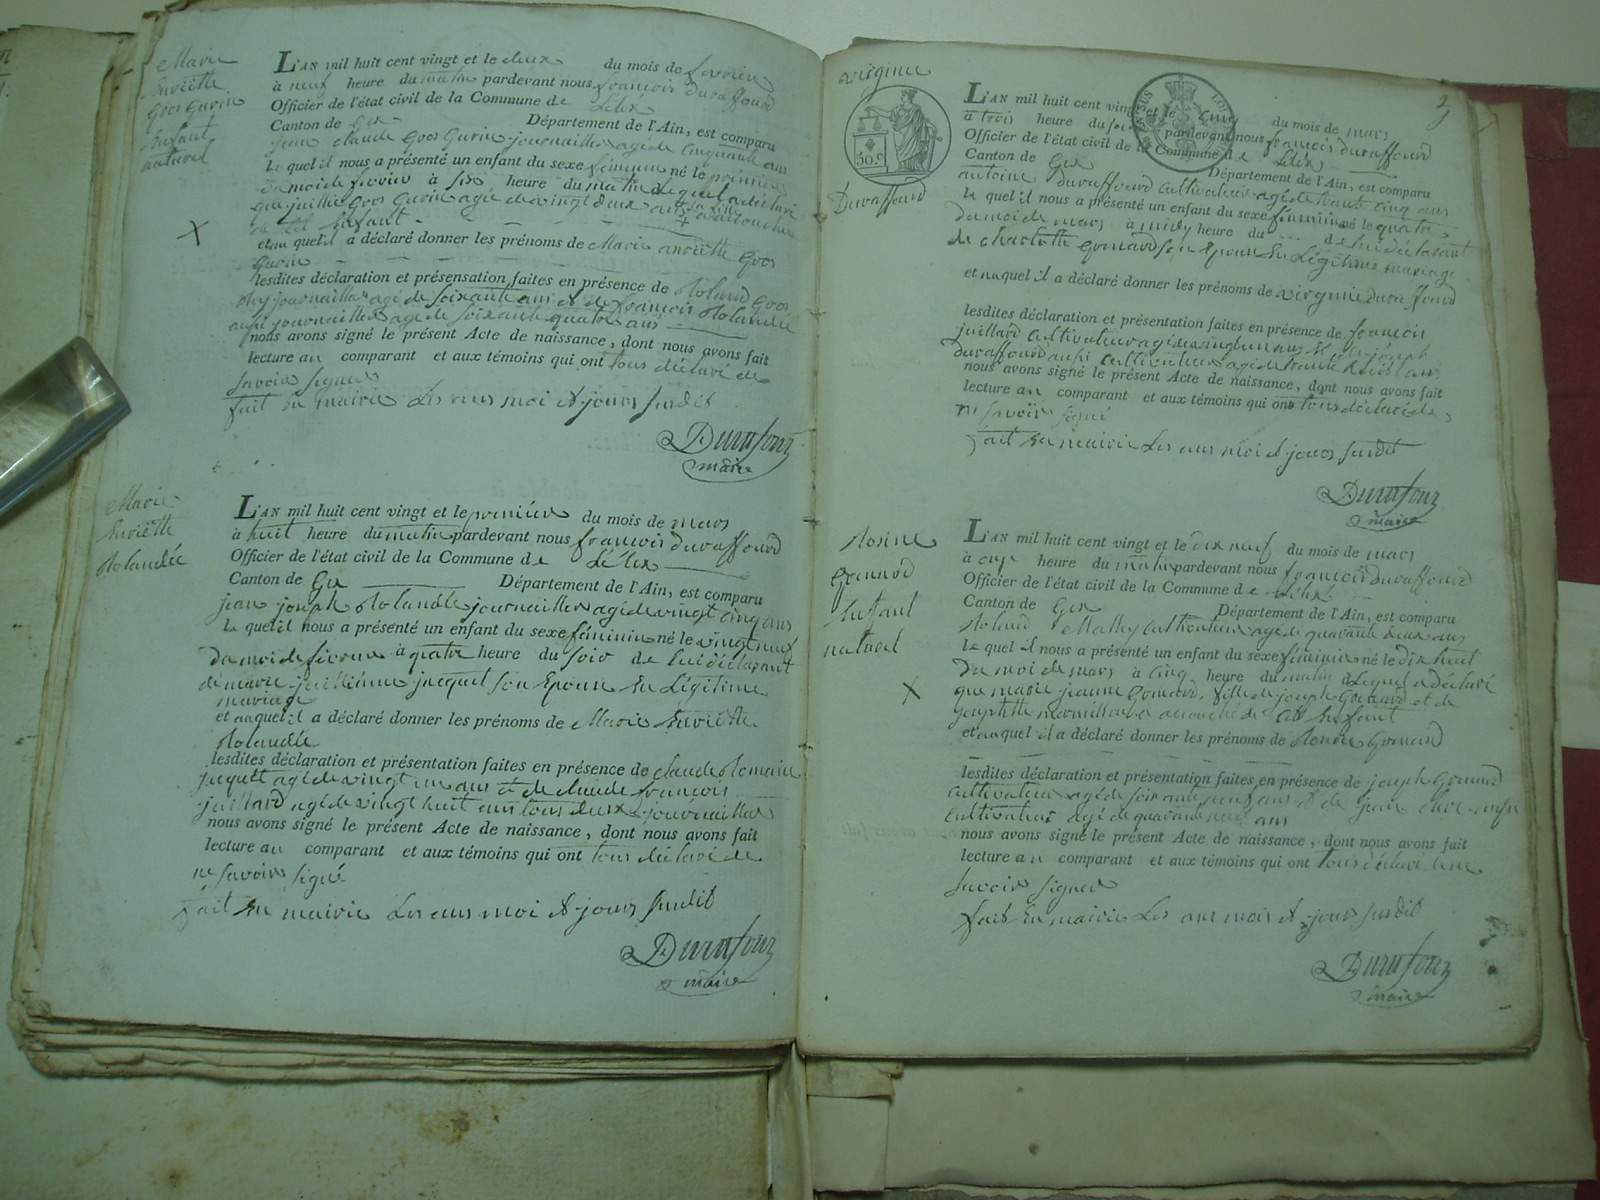 Marie
huriëtte
Gros Gurin
Enfant
naturel
L'AN mil huit cent vingt et le deux du mois de fevrier
à neuf heure du matin pardevant nous françois duraffourd
Officier de l'état civil de la Commune de Lélex
Canton de Gex Département de l'Ain, est comparu
jean claude Gros Gurin journaillier agé de Cinquante ans
Le quel il nous a présenté un enfant du sexe féminin né le premier
du moi de fevrier à six heure du matin Lequel a déclaré
que Gros Gurin agé de vingt deux ans accouchée
de Cet Enfant
et au quel il a déclaré donner les prénoms de Marie Gros
Gurin
lesdites déclaration et présensation faites en présence de Roland Gros
journaillier agé de soixante ans et de françois Rolandée
aussi journaillier agé de soixante quatre ans
nous avons signé le présent Acte de naissance, dont nous avons fait
lecture au comparant et aux témoins qui ont tous déclaré de
savoir signer
fait En mairie Les ans moi et jours susdit
Durafour
maire
Marie
huriëtte
Rolandée
L'AN mil huit cent vingt et le premier du mois de mars
à huit heure du matin pardevant nous françois duraffourd
Officier de l'état civil de la Commune de Lélex
Canton de Gex Département de l'Ain, est comparu
jean joseph Rolandée journaillier agé de vingt cinq ans
Le quel il nous a présenté un enfant du sexe féminin né le vingt neuf
du moi de fevrier à quatre heure du soir de Lui déclarant
de marie jullienne jacquet son Epouse En Légitime
mariage
et auquel il a déclaré donner les prénoms de Marie huriëtte
Rolandée
lesdites déclaration et présentation faites en présence de claude Romain
jacquet agé de vingt un ans et de claude françois
juillard agé de vingt huit ans tous deux journaillier
nous avons signé le présent Acte de naissance, dont nous avons fait
lecture au comparant et aux témoins qui ont tous déclaré de
ne savoir signé
fait En mairie Les ans moi et jours susdit
Durafour
maire
virginie
30.c
Duraffourd
2
L'AN mil huit cent vingt et le cinq du mois de mars
à trois heure du soir pardevant nous françois duraffourd
Officier de l'état civil de la Commune de Lélex
Canton de Gex Département de l'Ain, est comparu
antoine duraffourd Cultivateur agé de trente cinq ans
Le quel il nous a présenté un enfant du sexe féminin né le quatre
du moi de mars à midy heure du de lui déclarant
de charlotte Gonard son Epouse En Légitime mariage
et auquel il a déclaré donner les prénoms de virginie duraffourd
lesdites déclaration et présentation faites en présence de françois
juillard cultivateur agé de cinquante ans et joseph
duraffourd aussi cultivateur agé de trente ans
nous avons signé le présent Acte de naissance, dont nous avons fait
lecture au comparant et aux témoins qui ont tous déclaré de
ne savoir signé
fait En mairie Les ans moi et jours susdit
Durafour
maire
Rosine
Gonnard
Enfant
naturel
L'AN mil huit cent vingt et le dix neuf du mois de mars
à onze heure du matin pardevant nous françois duraffourd
Officier de l'état civil de la Commune de Lélex
Canton de Gex Département de l'Ain, est comparu
Roland Mathy cultivateur agé de quarante deux ans
Le quel il nous a présenté un enfant du sexe féminin né le dix huit
du moi de mars à cinq heure du matin Lequel a déclaré
que marie jeanne Gonard, fille de joseph Gonard et de
josephtte accouchée de Cet Enfant
et auquel il a déclaré donner les prénoms de Rosine Gonnard
lesdites déclaration et présentation faites en présence de joseph Gonnard
cultivateur agé de soixante ans et de jean
cultivateur agé de quarante ans
nous avons signé le présent Acte de naissance, dont nous avons fait
lecture au comparant et aux témoins qui ont tous déclaré ne
savoir signer
fait En mairie Les ans mois et jours susdit
Durafour
maire